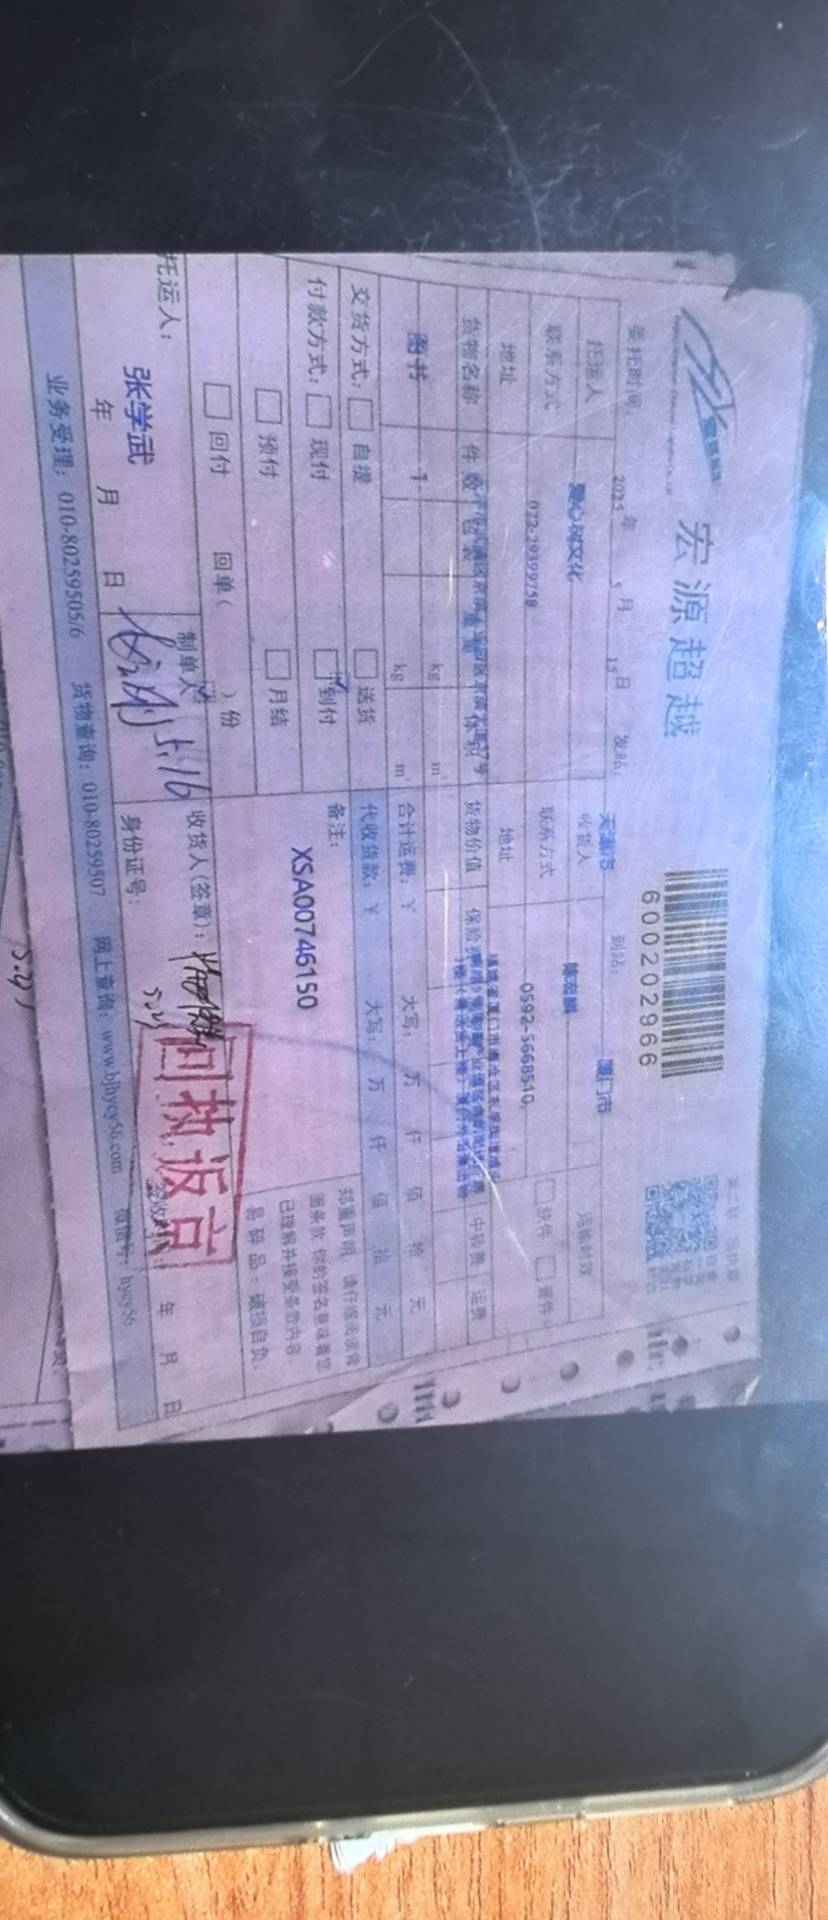 宏源超越
600202966
委托时间: 2025 年 5 月 15 日 发站: 天津市 到站: 厦门市
托运人 爱心树文化 收货人 运输时效
联系方式 022-29399758 联系方式 0592-5668510, 快件 普件
地址 地址
货物名称 件数 包装 重量 体积 货物价值 保险费 中转费 运费
图书 1 kg m³
kg m³ 合计运费: ¥ 大写: 万 仟 佰 拾 元
交货方式: 自提 送货 代收货款: ¥ 大写: 万 仟 佰 拾 元
付款方式: 现付 到付 备注:
预付 月结 XSA00746150
回付 回单( )份
郑重声明: 请仔细阅读背
面条款 你的签名意味着您
已理解并接受条款内容.
易碎品: 破损自负.
托运人: 张学武 制单人: 收货人(签章):
年 月 日 5.16 身份证号: 5.21 年 月 日
回执返京
业务受理: 010-80259505/6 货物查询: 010-80259507 网上查询: www.bjhycy56.com 微信号: hycy56
5.21